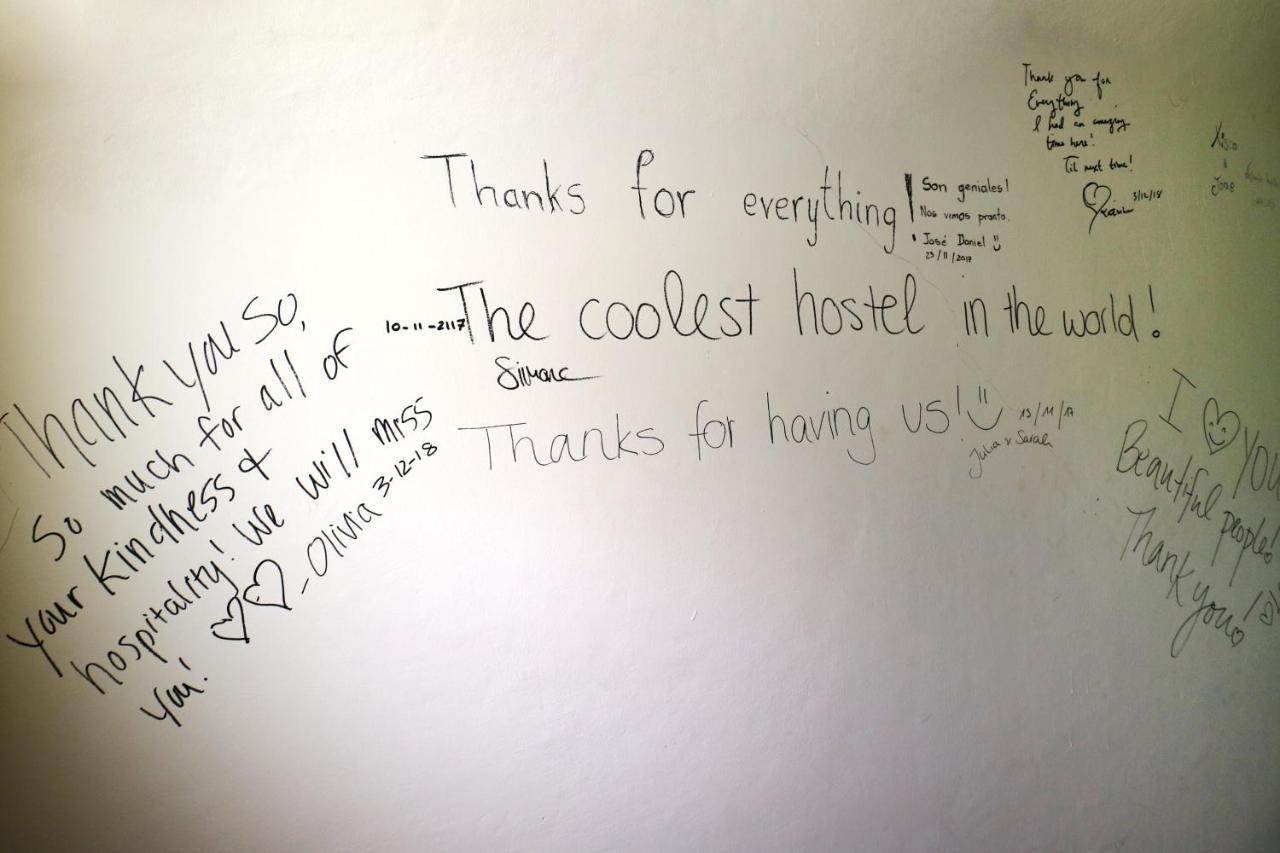 Thank you so,
So much for all of
your kindness &
hospitality! We will miss
you! - Olivia 3-12-18
Thanks for everything!
The coolest hostel in the world!
10-11-2117
Simone
Thanks for having us!
13/11/17
Julia & Sarah
Son geniales!
Nos vimos pronto.
José Daniel
23/11/2017
Thank you for
Everything
I had an amazing
time here!
Til next time!
3/12/18
Jose
I YOU
Beautiful people!
Thank you!